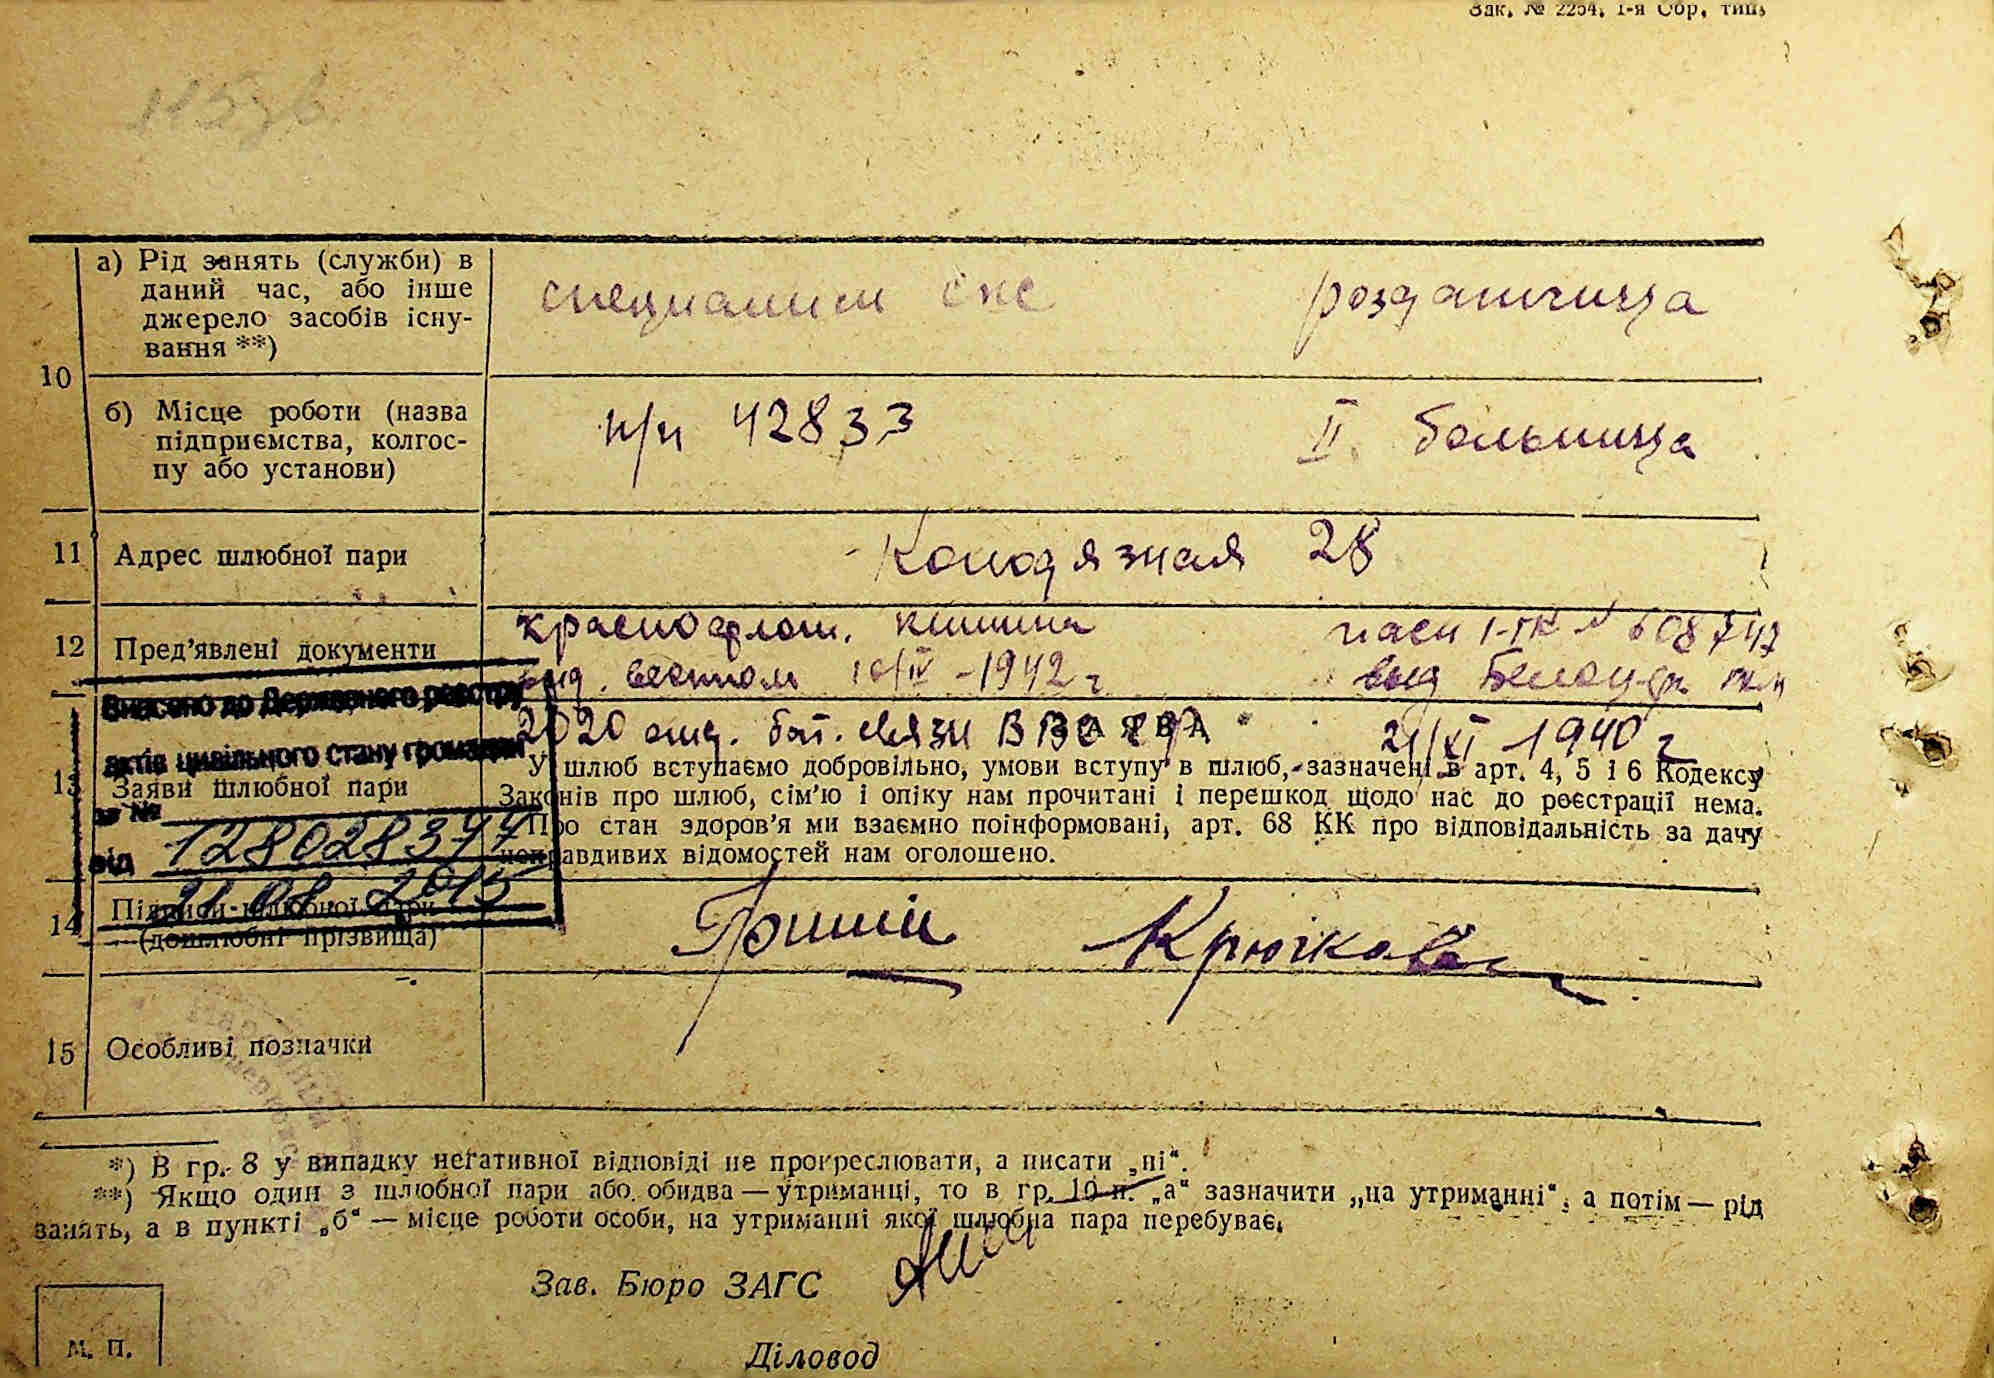 Зак. № 2254, 1-я Обр. тип.
10
а) Рід занять (служби) в
даний час, або інше
джерело засобів існу-
вання **)
специалист
раздатчица
б) Місце роботи (назва
підприємства, колгос-
пу або установи)
п/п 42833
II больница
11
Адрес шлюбної пари
Колодязная 28
12
Пред'явлені документи
краснофлот. книжка
пасп
608747
выд
10/IV - 1942 г
выд
2020 отд. бат. связи
21/XI 1940 г
Внесено до Державного реєстру
актів цивільного стану громадян
за №
від
13
Заяви шлюбної пари
У шлюб вступаємо добровільно, умови вступу в шлюб, зазначені в арт. 4, 5 і 6 Кодексу
Законів про шлюб, сім'ю і опіку нам прочитані і перешкод щодо нас до реєстрації нема.
Про стан здоров'я ми взаємно поінформовані, арт. 68 КК про відповідальність за дачу
неправдивих відомостей нам оголошено.
14
Підписи шлюбної пари
(дошлюбні прізвища)
Крючкова
15
Особливі позначки
*) В гр. 8 у випадку негативної відповіді не прокреслювати, а писати „ні“.
**) Якщо один з шлюбної пари або обидва — утриманці, то в гр. 10 п. „а“ зазначити „на утриманні“, а потім — рід
занять, а в пункті „б“ — місце роботи особи, на утриманні якої шлюбна пара перебуває.
Зав. Бюро ЗАГС
М. П.
Діловод